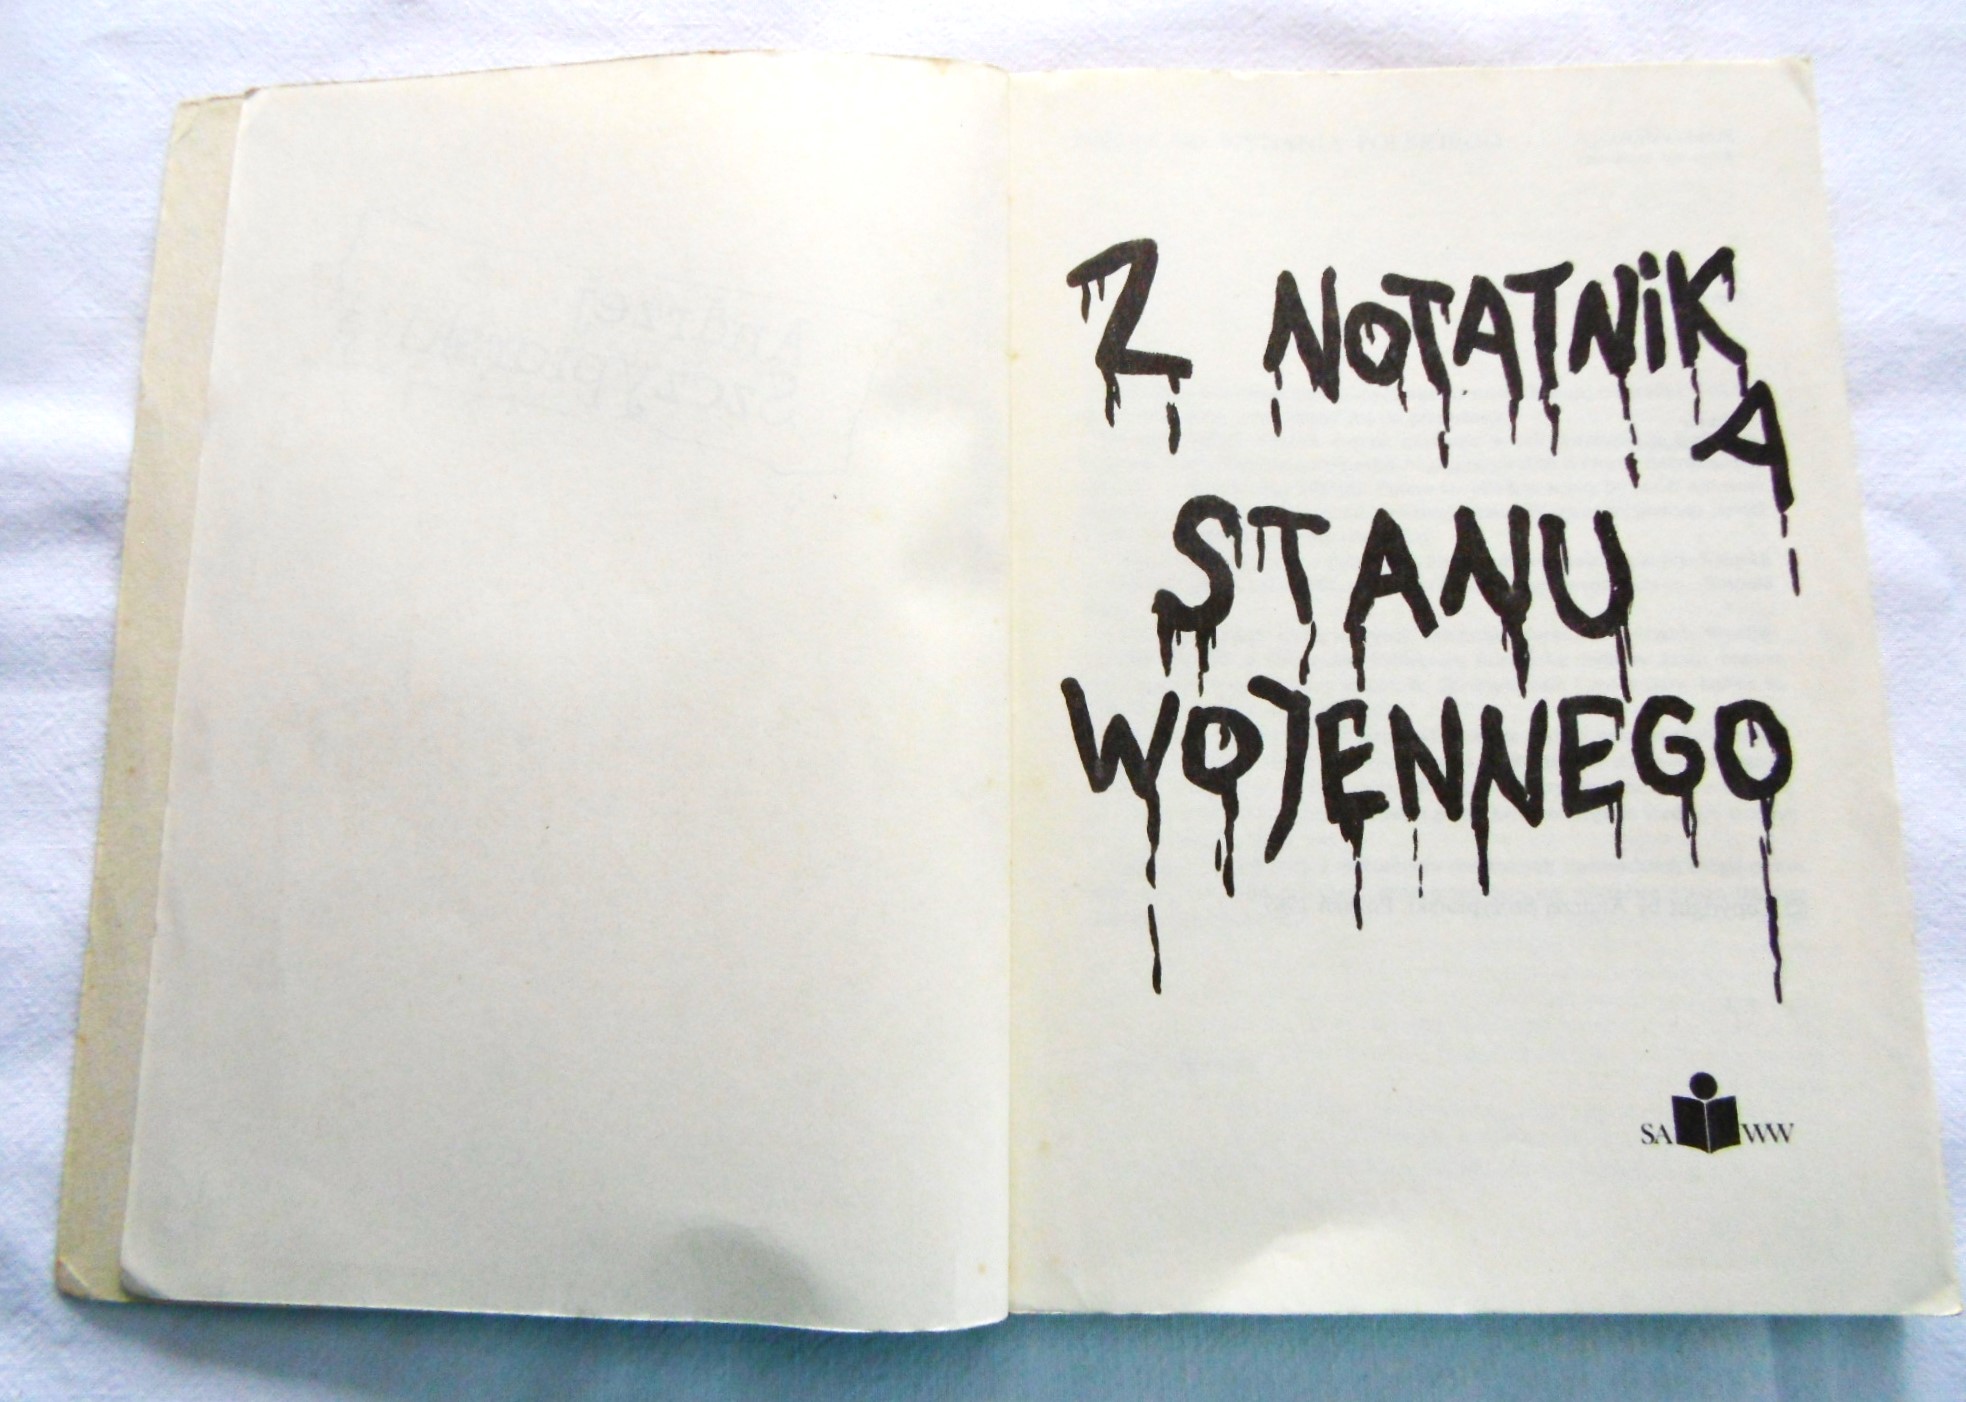 Z NOTATNiKA
STANU
WOJENNEGO
SA WW